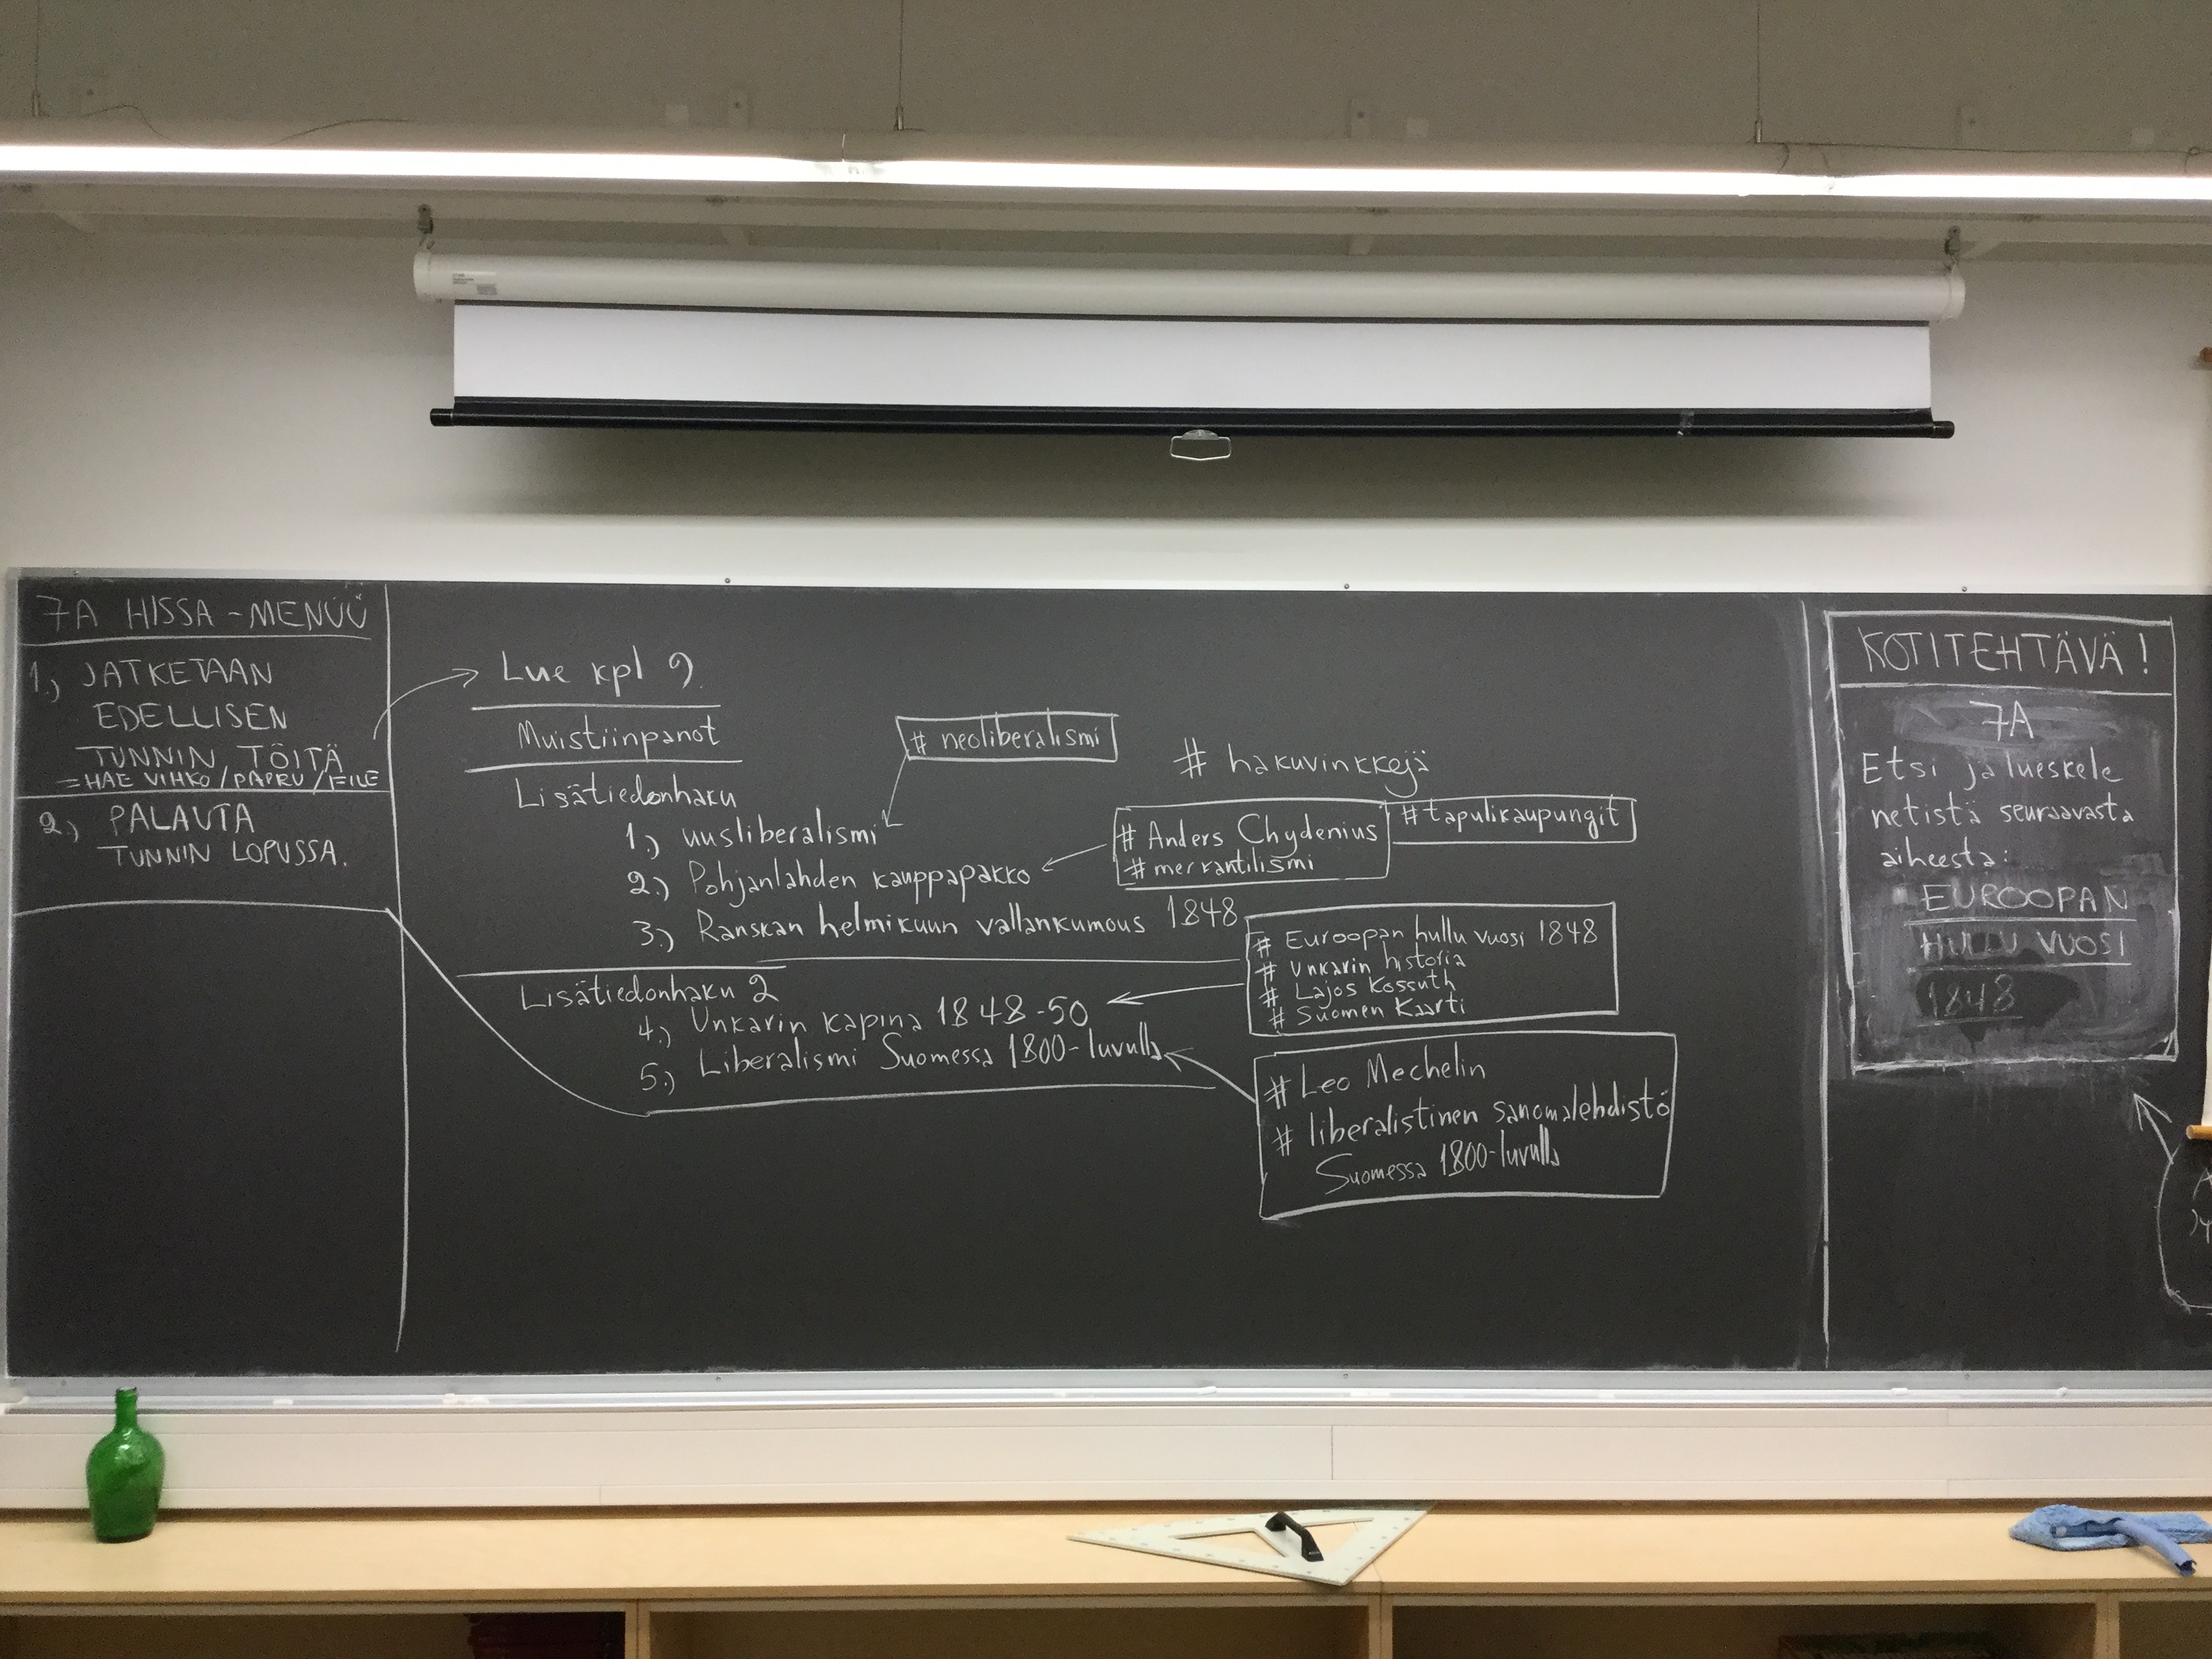 7A HISSA-MENÜÜ
1.) JATKETAAN
EDELLISEN
TUNNIN TÖITÄ
=HAE VIHKO/PAPRU/FILE
2.) PALAUTA
TUNNIN LOPUSSA.
Lue kpl 9.
Muistiinpanot
Lisätiedonhaku
1.) uusliberalismi
2.) Pohjanlahden kauppapakko
3.) Ranskan helmikuun vallankumous 1848
Lisätiedonhaku 2
4.) Unkarin kapina 1848-50
5.) Liberalismi Suomessa 1800-luvulla
# neoliberalismi
# hakuvinkkejä
# Anders Chydenius
# merkantilismi
# tapulikaupungit
# Euroopan hullu vuosi 1848
# Unkarin historia
# Lajos Kossuth
# Suomen Kaarti
# Leo Mechelin
# liberalistinen sanomalehdistö
Suomessa 1800-luvulla
KOTITEHTÄVÄ!
7A
Etsi ja lueskele
netistä seuraavasta
aiheesta:
EUROOPAN
HULLU VUOSI
1848